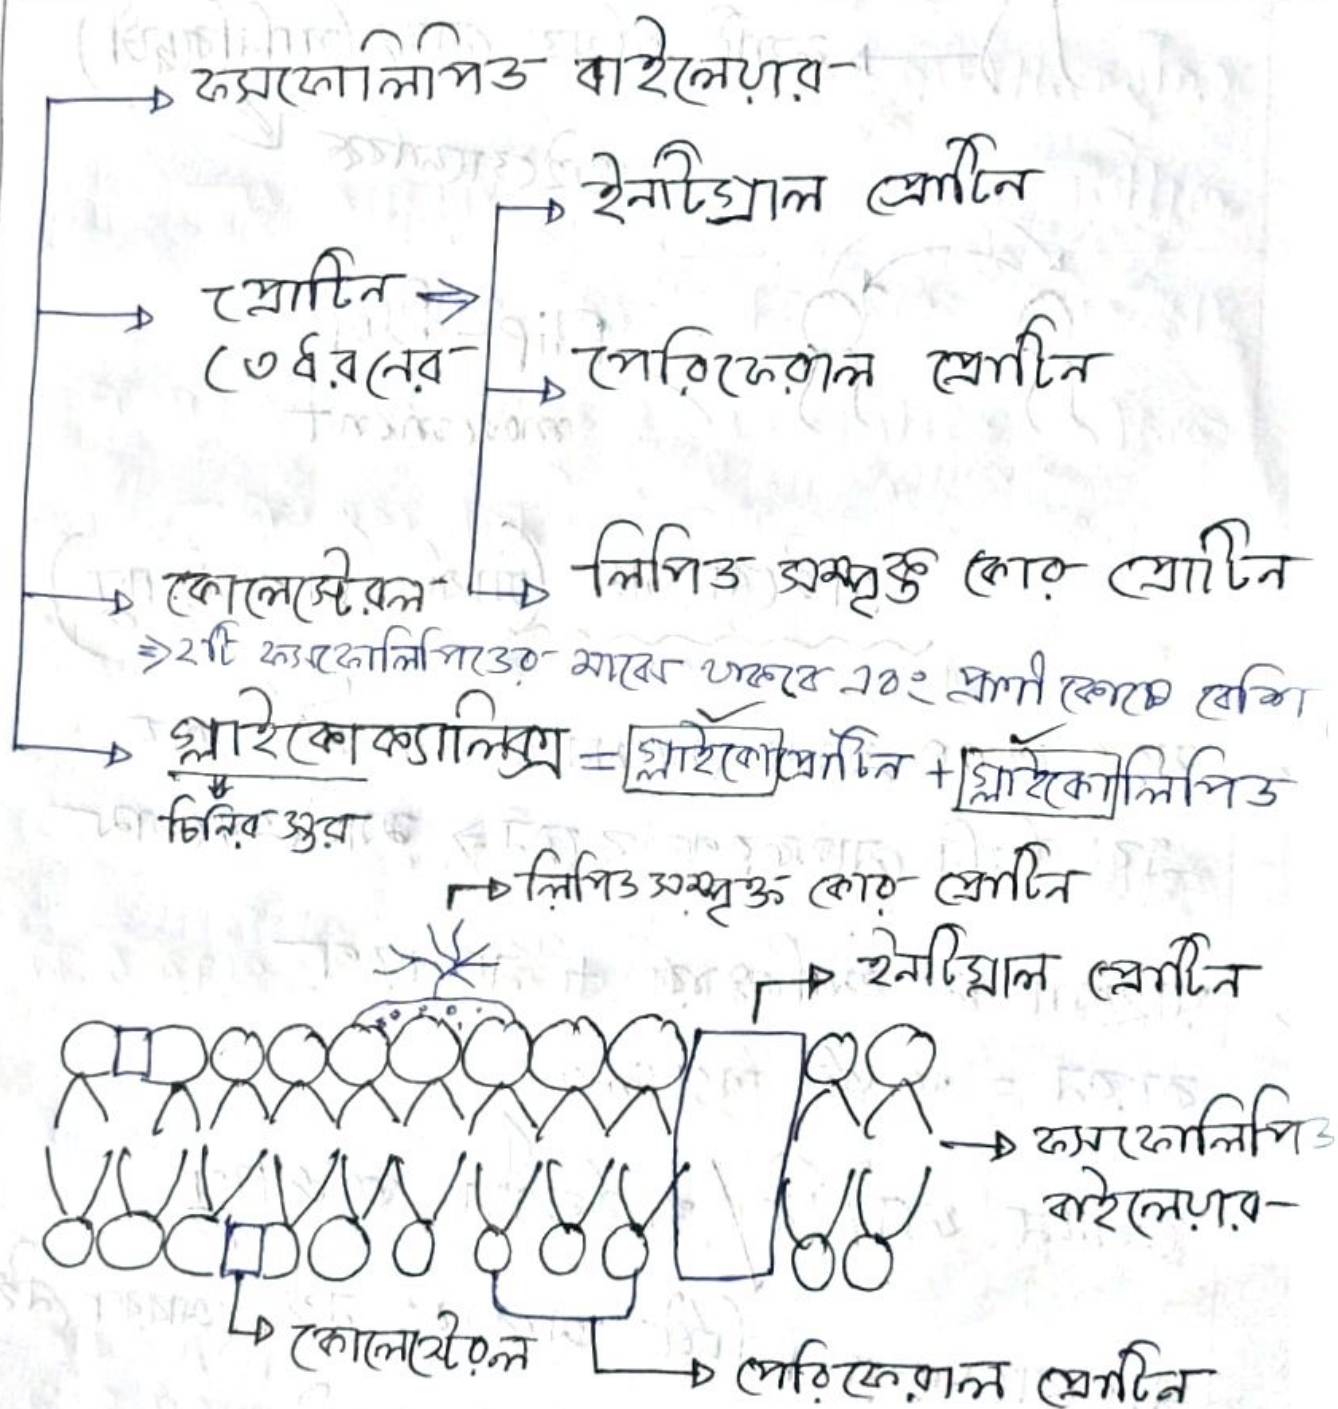 ফসফোলিপিড বাইলেয়ার
ইনটিগ্রাল প্রোটিন
প্রোটিন ⇒
(৩ ধরনের
পেরিফেরাল প্রোটিন
লিপিড সম্পৃক্ত কোর প্রোটিন
কোলেস্টেরল
⇒ ২টি ফসফোলিপিডের মাঝে থাকবে এবং প্রাণী কোষে বেশি
গ্লাইকোক্যালিক্স = গ্লাইকোপ্রোটিন + গ্লাইকোলিপিড
চিনির স্তর
লিপিড সম্পৃক্ত কোর প্রোটিন
ইনটিগ্রাল প্রোটিন
ফসফোলিপিড
বাইলেয়ার
কোলেস্টেরল
পেরিফেরাল প্রোটিন